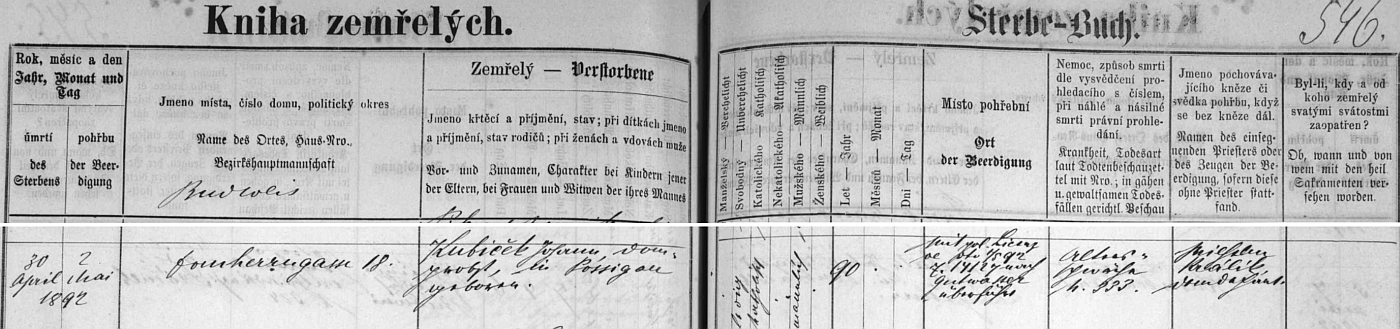 Kniha zemřelých.
Sterbe-Buch.
546.
Rok, měsíc a den
Jahr, Monat und
Tag
úmrtí
des
Sterbens
pohřbu
der Beer-
digung
Jmeno místa, číslo domu, politický okres
Name des Ortes, Haus-Nro.,
Bezirkshauptmannschaft
Budweis
Zemřelý — Verstorbene
Jmeno křtěcí a příjmění, stav; při dítkách jmeno
a příjmění, stav rodičů; při ženách a vdovách muže
Vor- und Zunamen, Charakter bei Kindern jener
der Eltern, bei Frauen und Witwen der ihres Mannes
Manželský — Verehelicht
Svobodný — Unverehelicht
Katolického — Katholisch
Nekatolického — Akatholisch
Mužského — Männlich
Ženského — Weiblich
Let — Jahr
Měsích — Monat
Dní — Tag
Místo pohřební
Ort
der Beerdigung
Nemoc, způsob smrti
dle vysvědčení pro-
hledacího s číslem,
při náhlé a násilné
smrti právní prohle-
dání.
Krankheit, Todesart
laut Todtenbeschauzet-
tel mit Nro.; in gähen
u. gewaltsamen Todes-
fällen gerichtl. Beschau
Jmeno pochováva-
jícího kněze či
svědka pohřbu, když
se bez kněze dál.
Namen des einseg-
nenden Priesters oder
des Zeugen der Be-
erdigung, sofern diese
ohne Priester statt-
fand.
Byl-li, kdy a od
koho zemřelý
svatými svátostmi
zaopatřen?
Ob, wann und von
wem mit den heil.
Sakramenten ver-
sehen worden.
30
April
1892
2
Mai
Domherrngasse 18.
Kubíček Johann, Dom-
probst, in Possigau
geboren.
katholisch
männlich
90
überführt
Alters-
schwäche
N. 333.
Wilhelm
Domdechant.